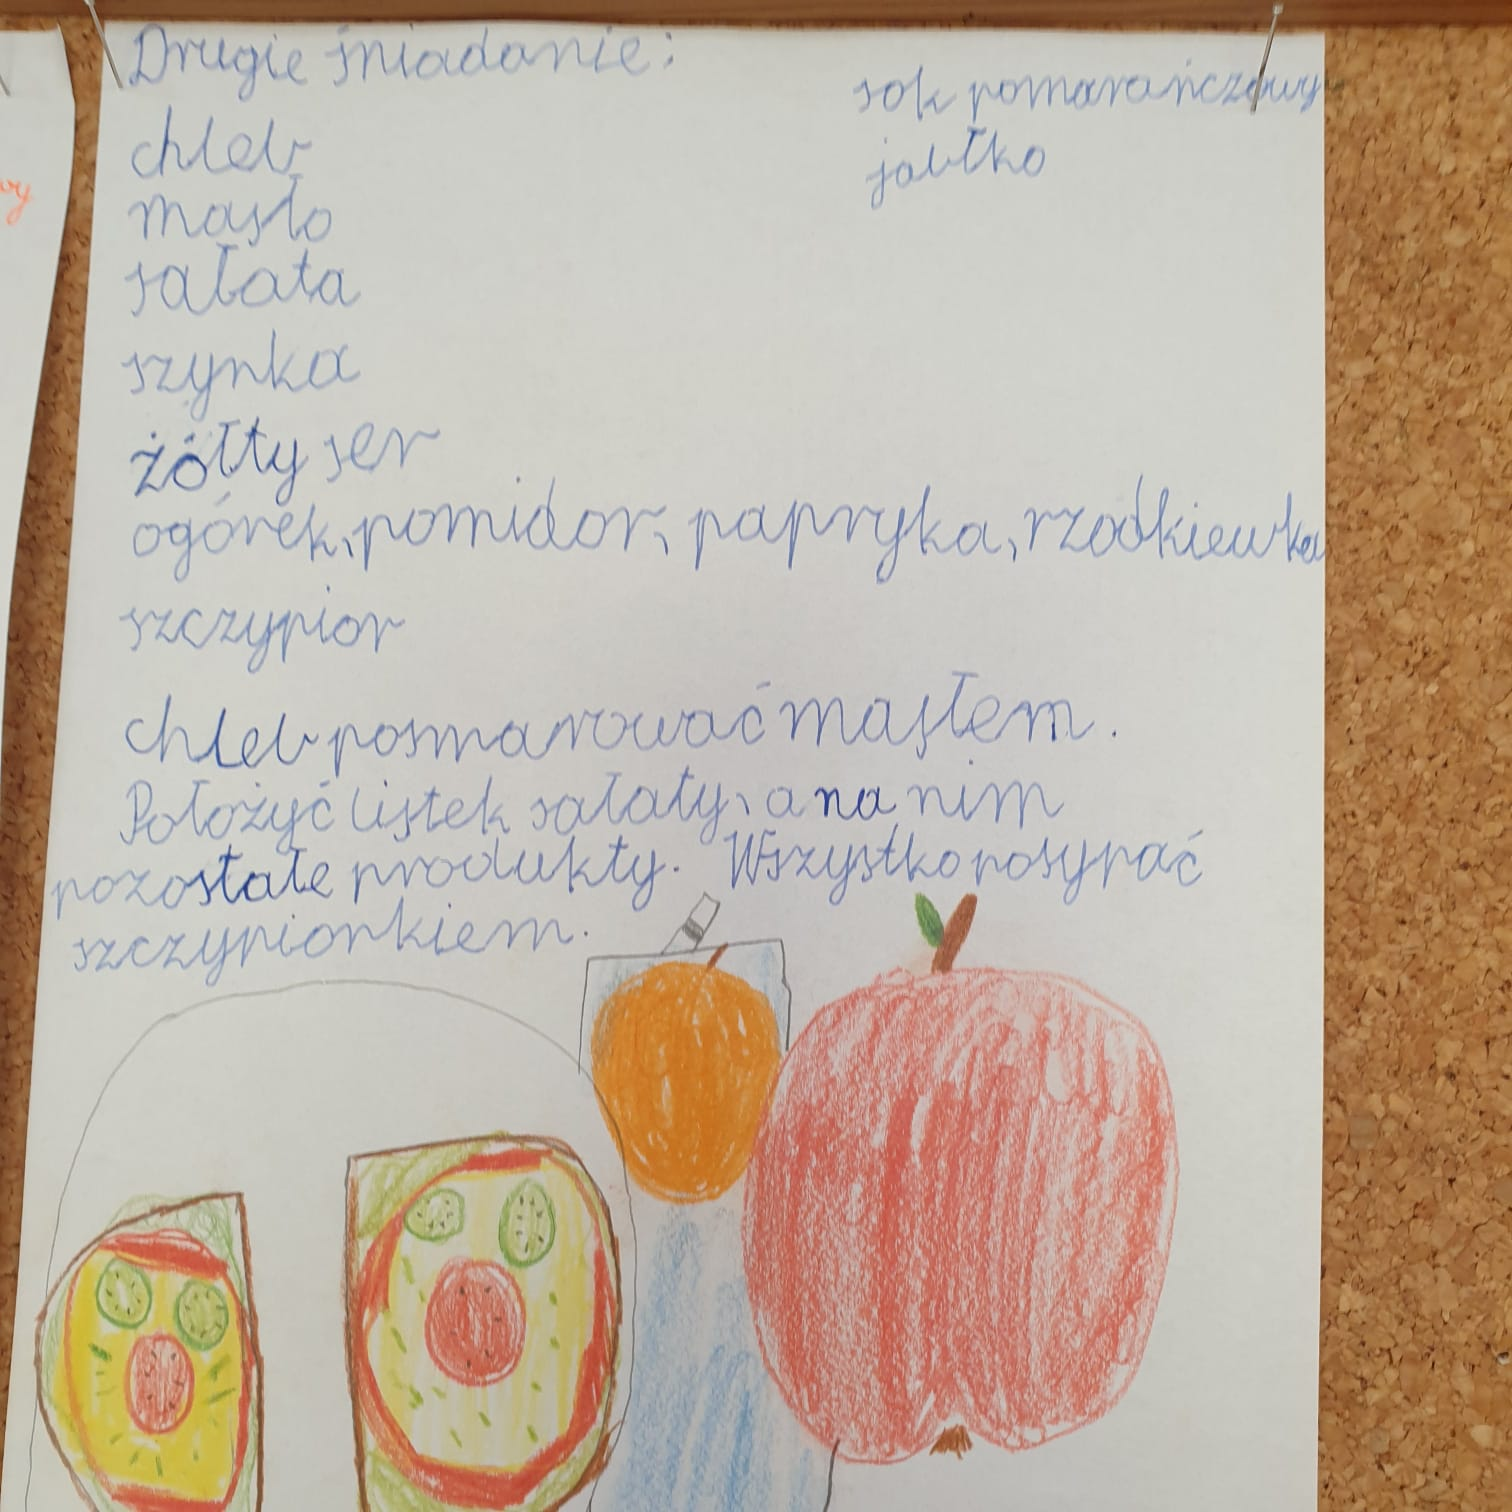 Drugie śniadanie:
chleb
masło
sałata
szynka
żółty ser
ogórek, pomidor, papryka, rzodkiewka
szczypior
sok pomarańczowy
jabłko
chleb posmarować masłem.
Położyć listek sałaty, a na nim
pozostałe produkty. Wszystko posypać
szczypiorkiem.